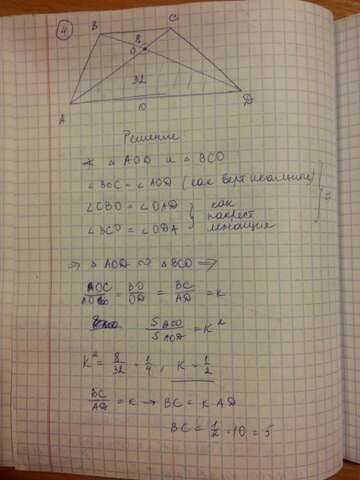 4
B C
8
O
32
A 10 D
Решение
△ AOD и △ BCO
∠BOC = ∠AOD (как верт икальные) ⇒
∠CBO = ∠OAD } как
накрест
∠BCO = ∠ODA лежащие
⇒ △ AOD ∾ △ BCO ⇒
BO/OD = BC/AD = k
S BCO / S AOD = K²
K² = 8/32 = 1/4 , K = 1/2
BC/AD = k → BC = k AD
BC = 1/2 · 10 = 5